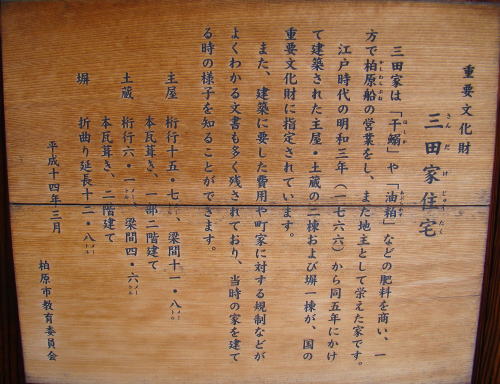 重要文化財
三田家住宅
さんだけじゅうたく
三田家は「干鰯」や「油粕」などの肥料を商い、一
ほしか
あぶらかす
方で柏原船の営業をし、また地主として栄えた家です。
かしわらぶね
江戸時代の明和三年(一七六六)から同五年にかけ
て建築された主屋・土蔵の二棟および塀一棟が、国の
重要文化財に指定されています。
また、建築に要した費用や町家に対する規制などが
よくわかる文書も多く残されており、当時の家を建て
る時の様子を知ることができます。
主屋 桁行十五・七メートル、梁間十一・八メートル
本瓦葺き、一部二階建て
土蔵 桁行六・一メートル、梁間四・六メートル
本瓦葺き、二階建て
塀 折曲り延長十二・八メートル
平成十四年三月
柏原市教育委員会